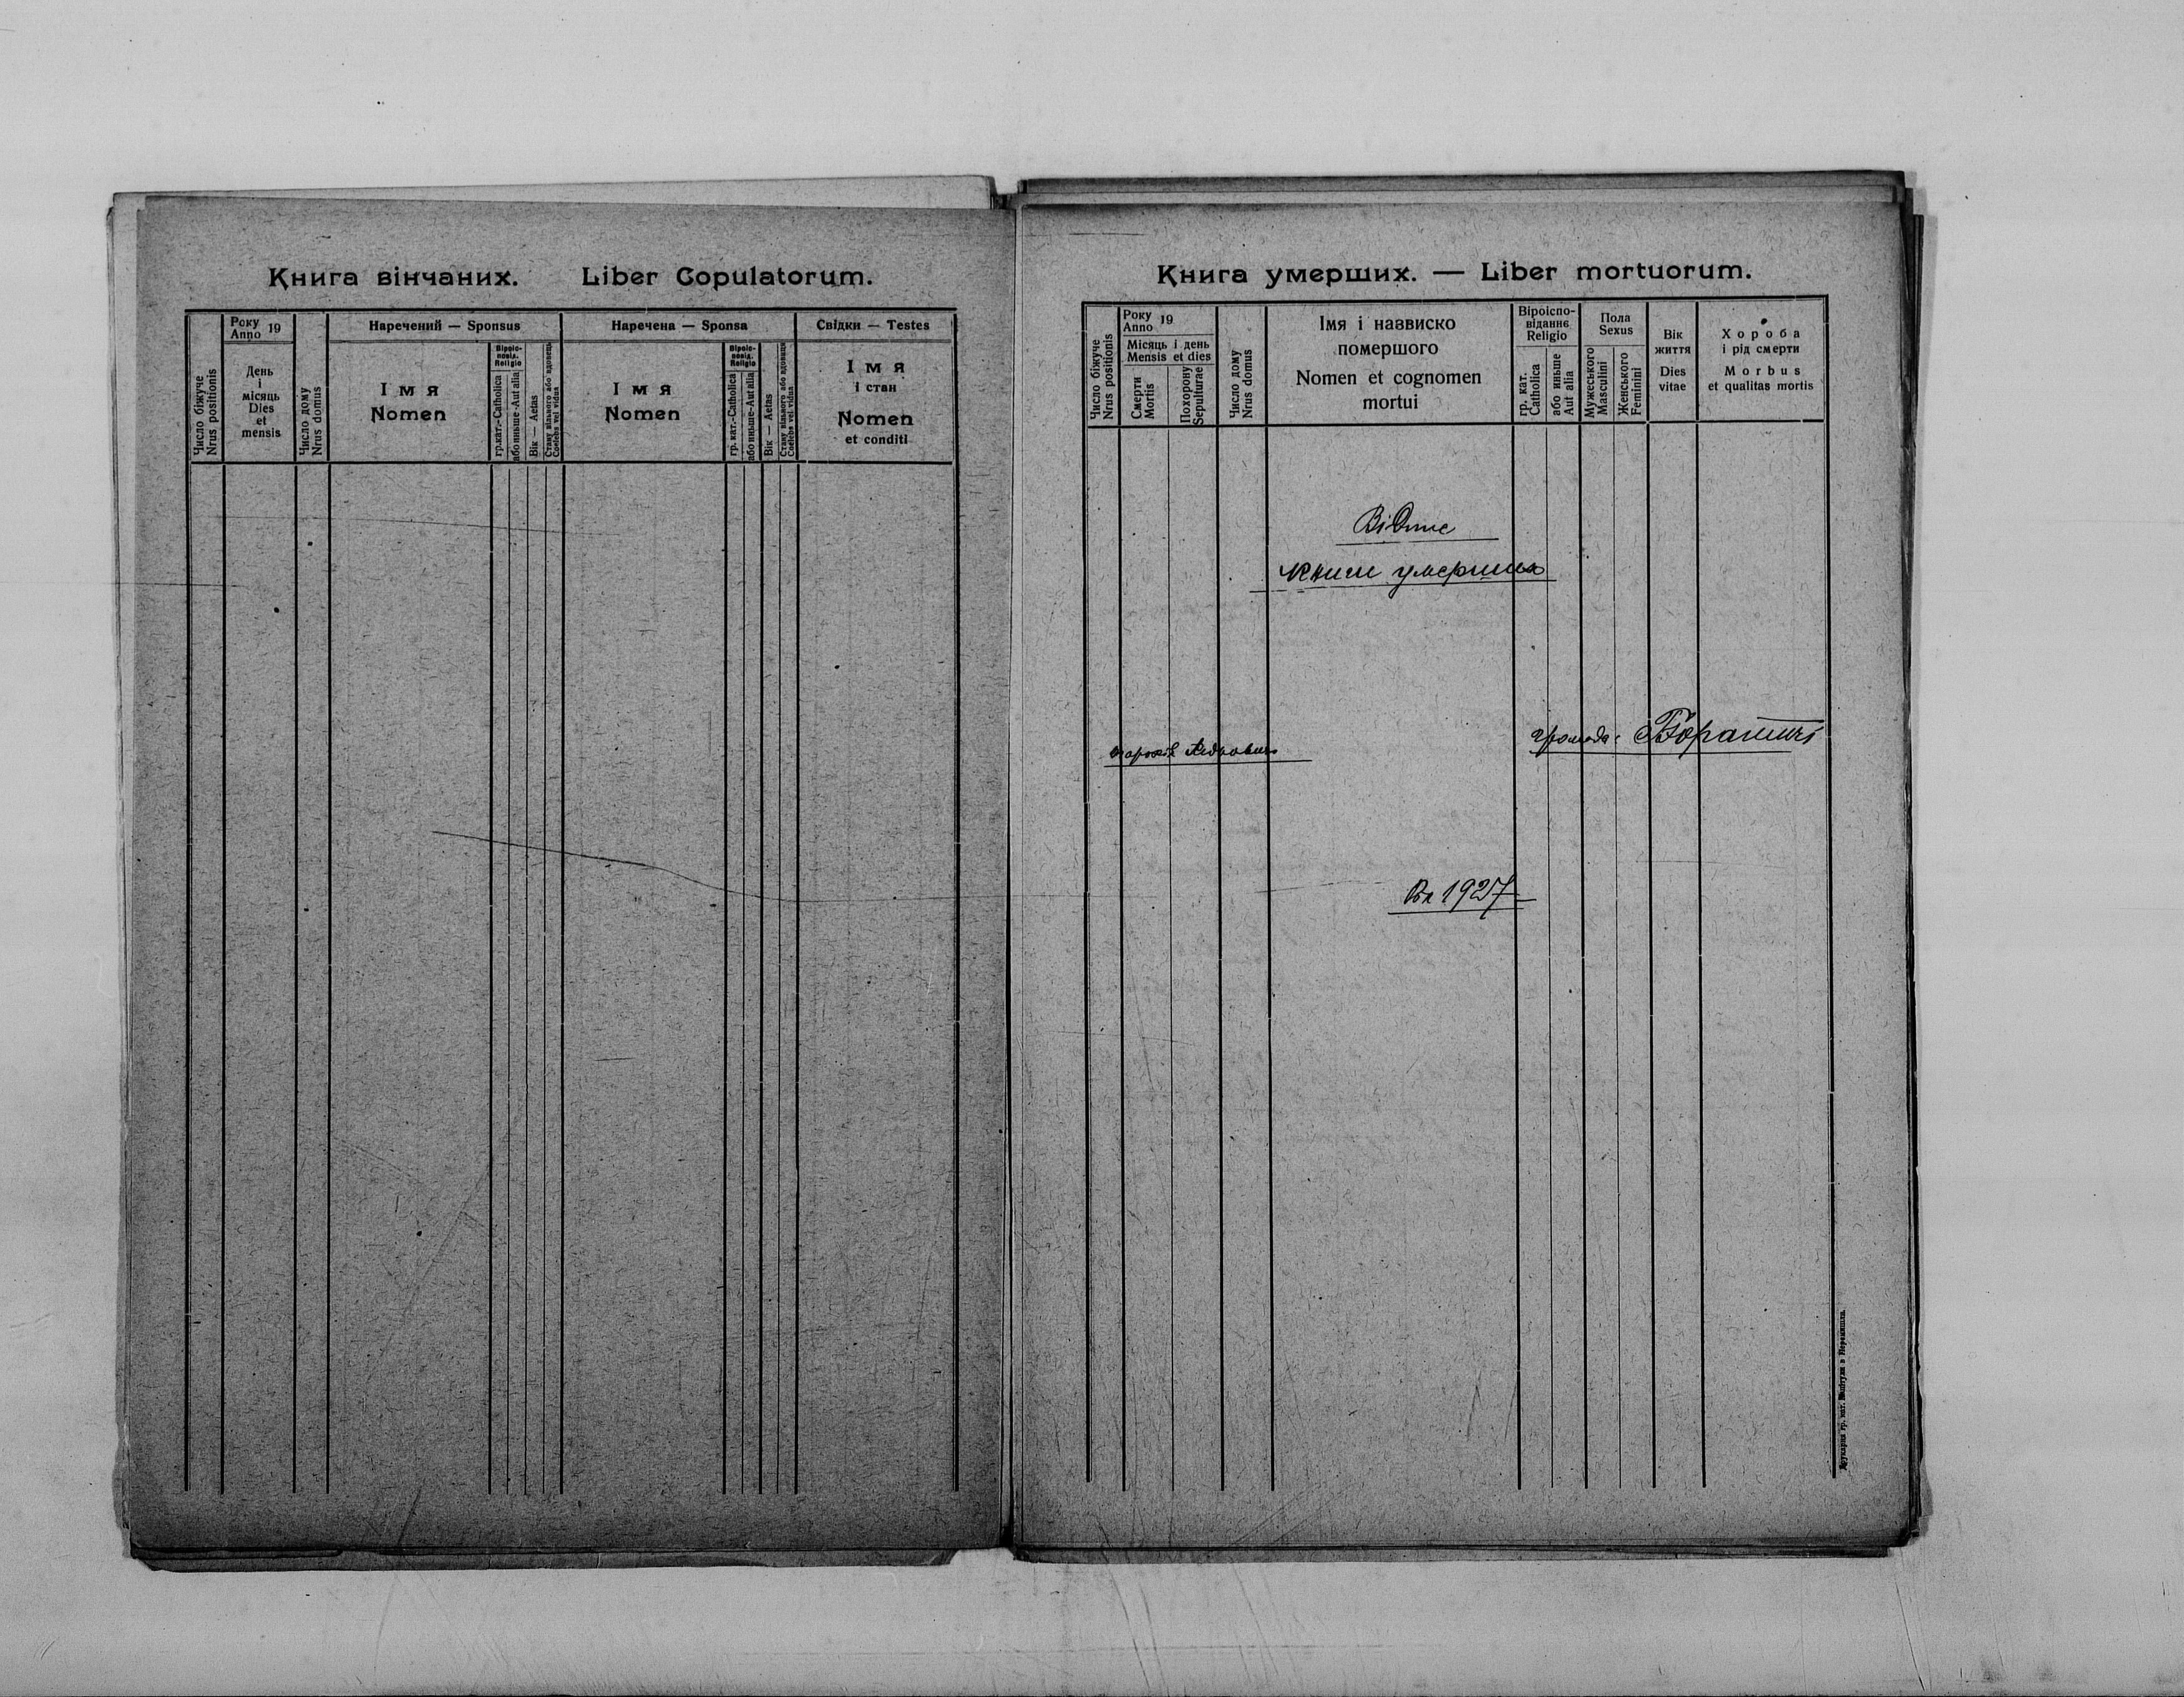 Книга вінчаних. Liber Copulatorum.
Число біжуче
Nrus positionis
Року
Anno 19
День
і
місяць
Dies
et
mensis
Число дому
Nrus domus
Наречений — Sponsus
Імя
Nomen
Віроіс-
повід.
Religio
гр. кат.-Catholica
або иньше-Aut alia
Вік — Aetas
Стану вільного або вдовець
Coelebs vel vidus
Наречена — Sponsa
Імя
Nomen
Віроіс-
повід.
Religio
гр. кат.-Catholica
або иньше-Aut alia
Вік — Aetas
Стану вільного або вдовиця
Coelebs vel vidua
Свідки — Testes
Імя
і стан
Nomen
et conditi
Книга умерших. — Liber mortuorum.
Число біжуче
Nrus positionis
Року
Anno 19
Місяць і день
Mensis et dies
Смерти
Mortis
Похорону
Sepulturae
Число дому
Nrus domus
Імя і назвиско
помершого
Nomen et cognomen
mortui
Віроіспо-
віданнє
Religio
гр. кат.
Catholica
або иньше
Aut alia
Пола
Sexus
Мужеського
Masculini
Женського
Feminini
Вік
життя
Dies
vitae
Хороба
і рід смерти
Morbus
et qualitas mortis
Відпис
Книги умерших
громада:
1927
Друкарня гр. кат. в Перемишли.